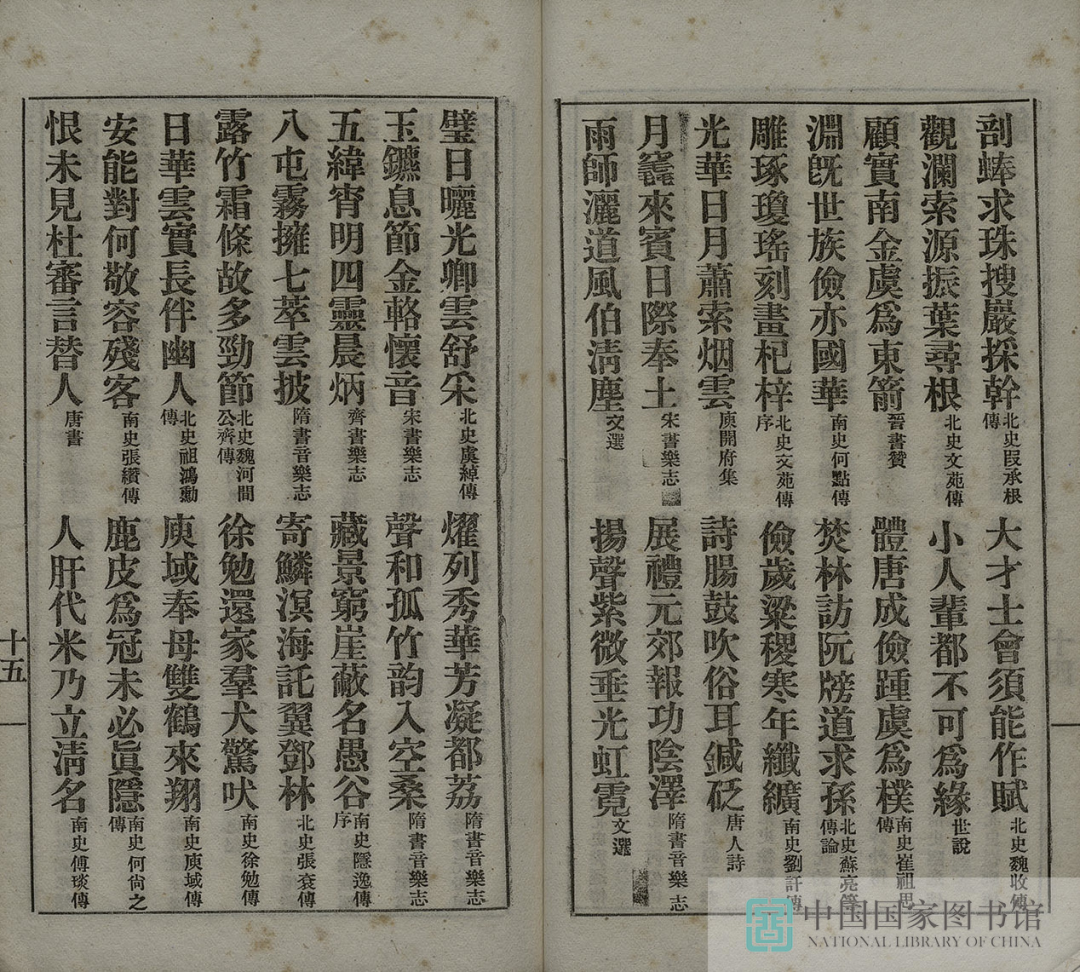 剖蜯求珠搜巖採幹 北史叚承根傳 大才士會須能作賦 北史魏收傳
觀瀾索源振葉尋根 北史文苑傳 小人輩都不可爲緣 世說
顧實南金虞爲東箭 晉書贊 體唐成儉踵虞爲樸 南史崔祖思傳
淵旣世族儉亦國華 南史何點傳 焚林訪阮牓道求孫 北史蘇亮等傳論
雕琢瓊瑤刻畫杞梓 北史文苑傳序 儉歲粱稷寒年纖纊 南史劉訏傳
光華日月蕭索烟雲 庾開府集 詩腸鼓吹俗耳鍼砭 唐人詩
月竁來賓日際奉土 宋書樂志 展禮元郊報功陰澤 隋書音樂志
雨師灑道風伯淸塵 文選 揚聲紫微垂光虹霓 文選
璧日曬光卿雲舒采 北史虞綽傳 燿列秀華芳凝都荔 隋書音樂志
玉鑣息節金輅懷音 宋書樂志 聲和孤竹韵入空桑 隋書音樂志
五緯宵明四靈晨炳 齊書樂志 藏景窮崖蔽名愚谷 南史隱逸傳序
八屯霧擁七萃雲披 隋書音樂志 寄鱗溟海託翼鄧林 北史張袞傳
露竹霜條故多勁節 北史魏河間公齊傳 徐勉還家羣犬驚吠 南史徐勉傳
日華雲實長伴幽人 北史祖鴻勳傳 庾域奉母雙鶴來翔 南史庾域傳
安能對何敬容殘客 南史張纘傳 鹿皮爲冠未必眞隱 南史何尙之傳
恨未見杜審言替人 唐書 人肝代米乃立淸名 南史傅琰傳
十五
中国国家图书馆
NATIONAL LIBRARY OF CHINA